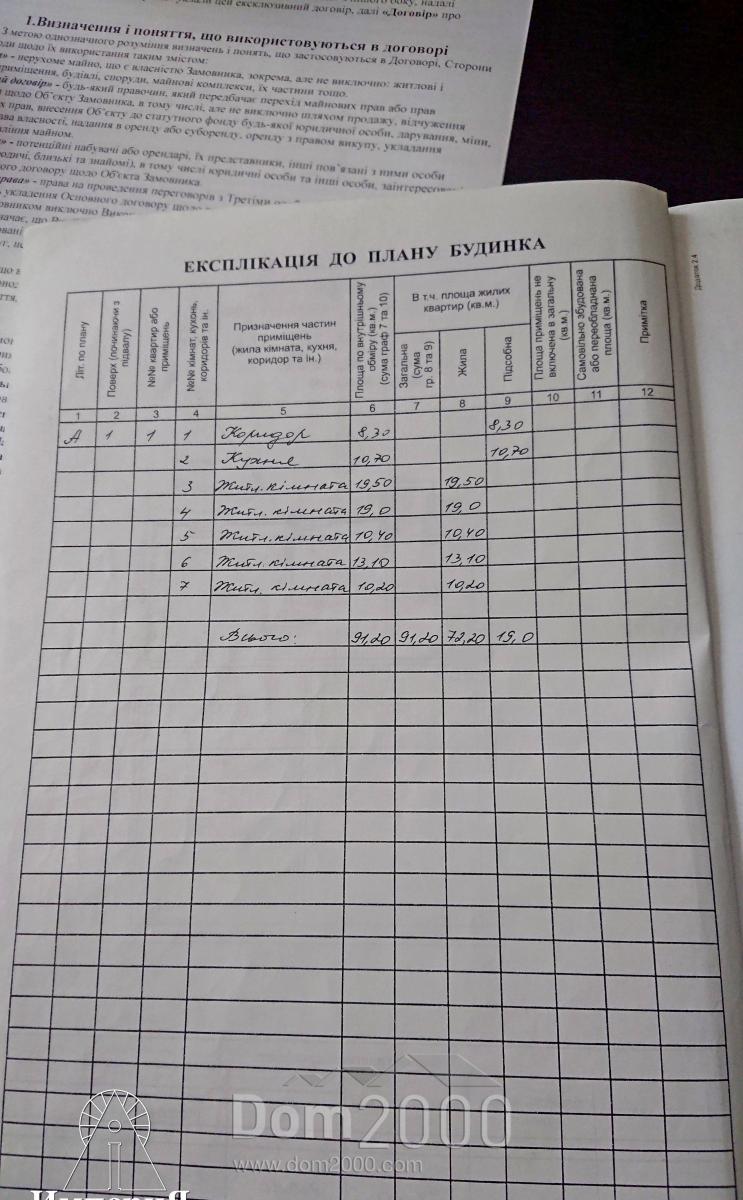 далі «Договір» про
1.Визначення і поняття, що використовуються в договорі
З метою однозначного розуміння визначень і понять, що застосовуються в Договорі, Сторони
щодо їх використання таким змістом:
- нерухоме майно, що є власністю Замовника, зокрема, але не виключно: житлові і
приміщення, будівлі, споруди, майнові комплекси, їх частини тощо.
договір» - будь-який правочин, який передбачає перехід майнових прав або прав
щодо Об'єкту Замовника, в тому числі, але не виключно шляхом продажу, відчуження
прав, внесення Об'єкту до статутного фонду будь-якої юридичної особи, дарування, міни,
власності, надання в оренду або суборенду, оренду з правом викупу, укладання
майном.
- потенційні набувачі або орендарі, їх представники, інші пов'язані з ними особи
близькі та знайомі), в тому числі юридичні особи та інші особи,
договору щодо Об'єкта Замовника.
права» - права на проведення переговорів з Третіми
укладення Основного договору щодо
виключно
ЕКСПЛІКАЦІЯ ДО ПЛАНУ БУДИНКА
Літ. по плану
Поверх (починаючи з підвалу)
№№ квартир або приміщень
№№ кімнат, кухонь, коридорів та ін.
Призначення частин приміщень (жила кімната, кухня, коридор та ін.)
Площа по внутрішньому обміру (кв.м.) (сума граф 7 та 10)
В т.ч. площа жилих квартир (кв.м.)
Загальна (сума гр. 8 та 9)
Жила
Підсобна
Площа приміщень не включена в загальну (кв.м.)
Самовільно збудована або переобладнана площа (кв.м.)
Примітка
Додаток 2.4
1 2 3 4 5 6 7 8 9 10 11 12
А 1 1 1 Коридор 8,30 8,30
2 Кухня 10,70 10,70
3 Житл. кімната 19,50 19,50
4 Житл. кімната 19,0 19,0
5 Житл. кімната 10,40 10,40
6 Житл. кімната 13,10 13,10
7 Житл. кімната 10,20 10,20
Всього: 91,20 91,20 72,20 19,0
Dom2000
www.dom2000.com
Империя